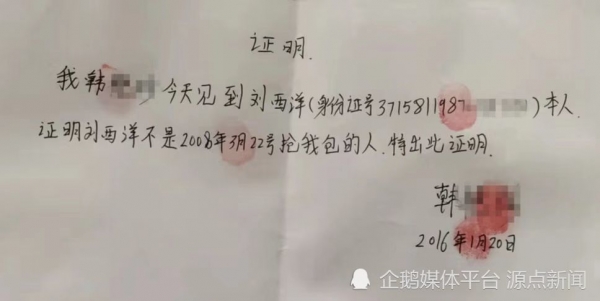 证明.
我韩 今天见到刘西洋(身份证号3715811987 )本人.
证明刘西洋不是2008年3月22号抢我包的人.特出此证明.
韩
2016年1月20日
企鹅媒体平台 源点新闻